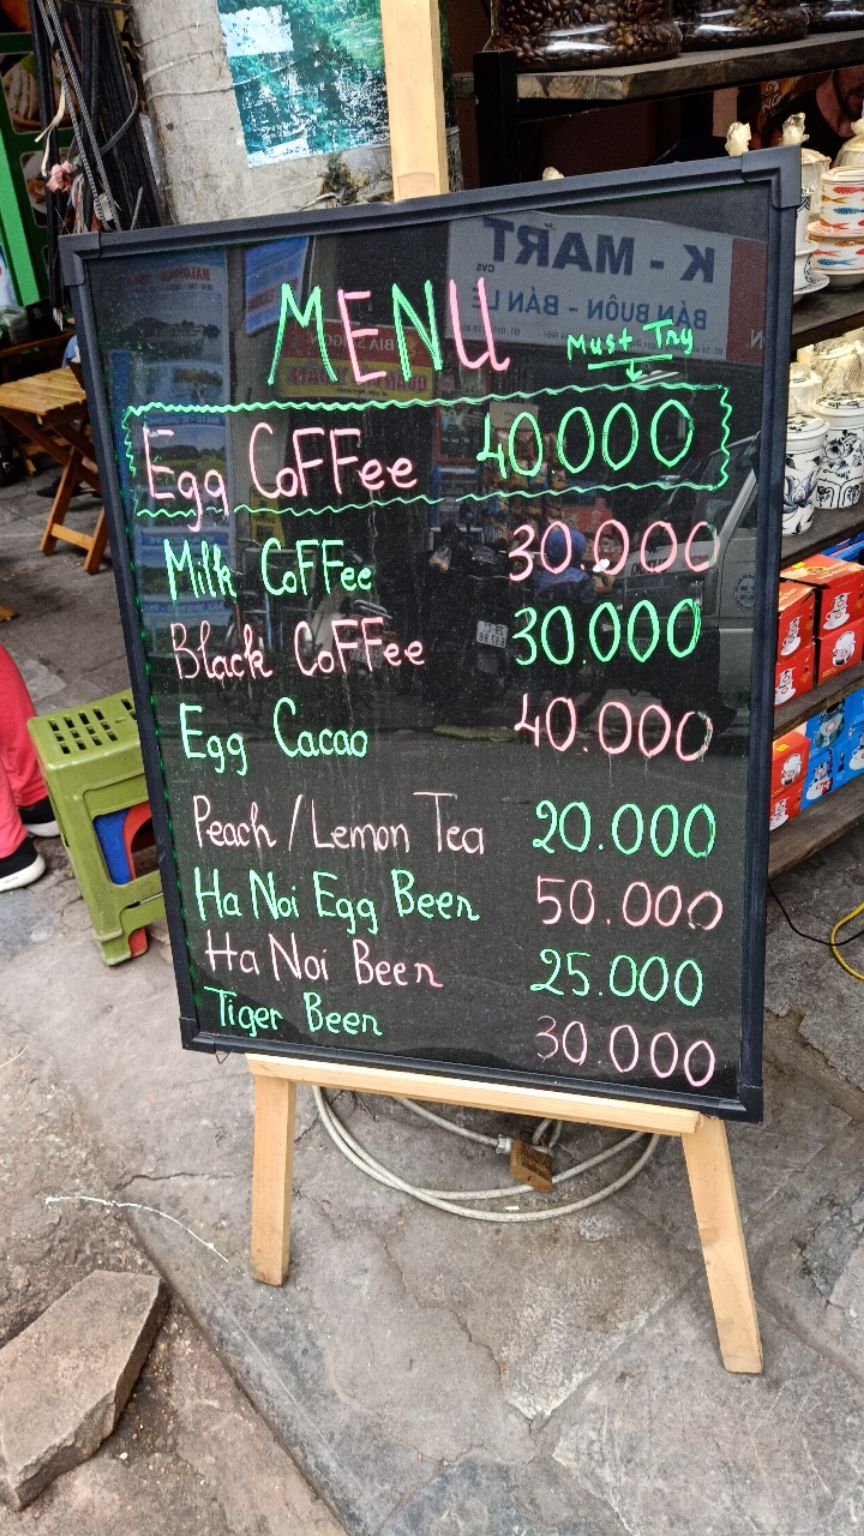 MENU
Must Try
Egg CoFFee 40000
Milk CoFFee 30.000
Black CoFFee 30.000
Egg Cacao 40.000
Peach / Lemon Tea 20.000
Ha Noi Egg Beer 50.000
Ha Noi Beer 25.000
Tiger Beer 30.000
K - MART
CVS
BÁN BUÔN - BÁN LẺ
BIA SAIGON